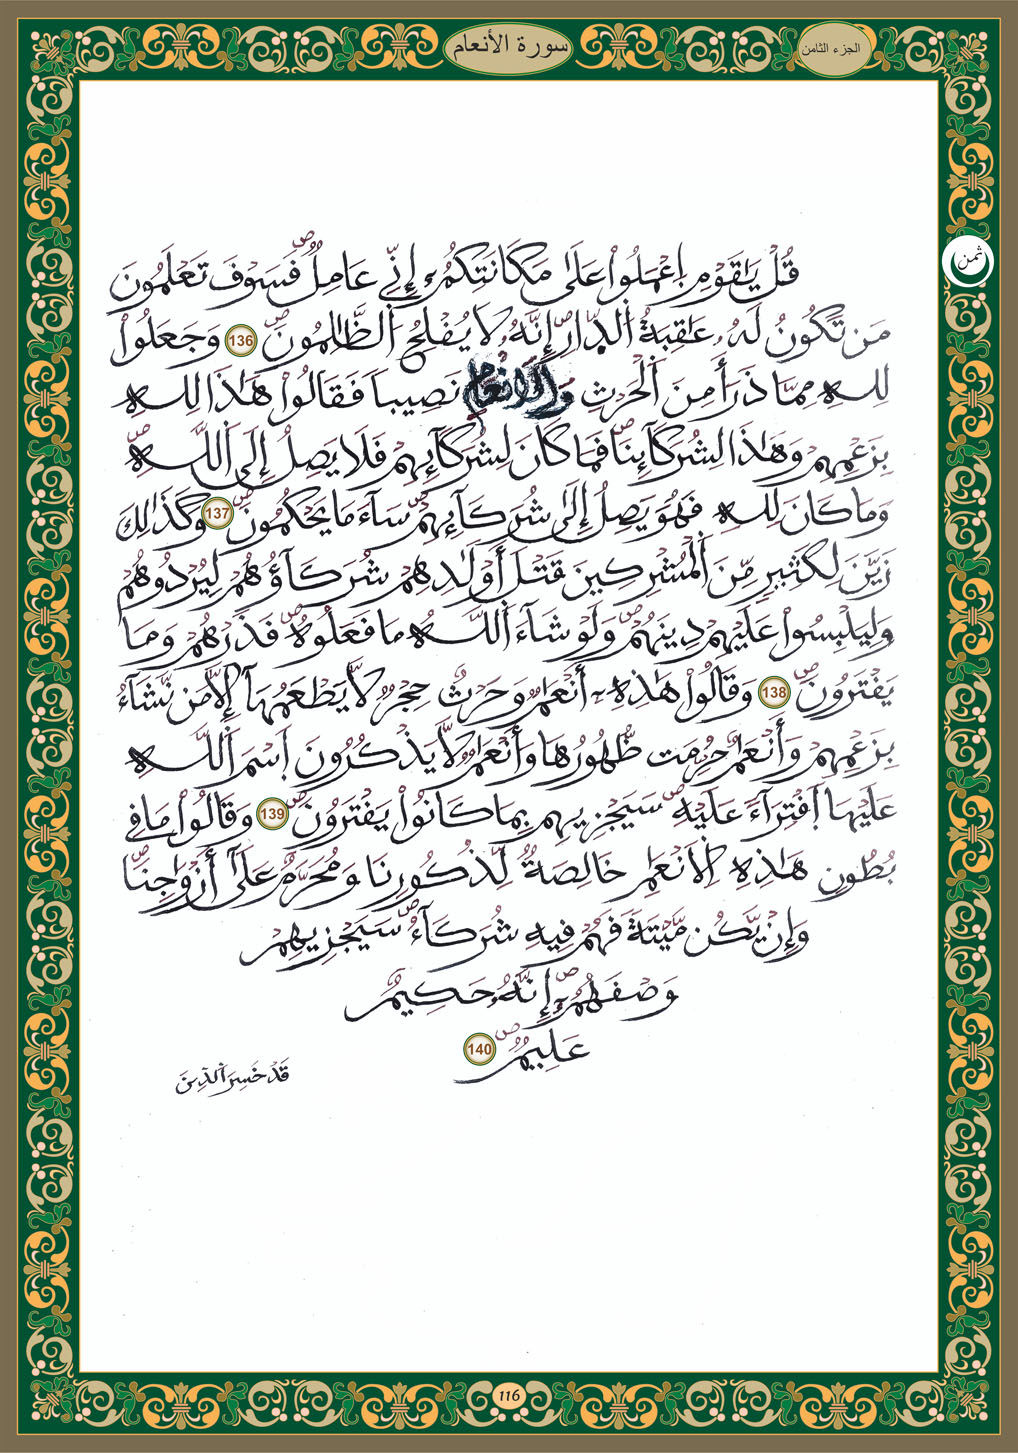 الجزء الثامن
سورة الأنعام
ثمن
قُلْ يَٰقَوْمِ اِعْمَلُواْ عَلَىٰ مَكَانَتِكُمُۥٓ إِنِّے عَامِلٌ ص فَسَوْفَ تَعْلَمُونَ
مَن تَكُونُ لَهُۥ عَٰقِبَةُ اُ۬لدّ۪ارِ ص إِنَّهُۥ لَا يُفْلِحُ اُ۬لظَّٰلِمُونَ ص 136 وَجَعَلُواْ
لِلهِ مِمَّا ذَرَأَ مِنَ اَ۬لْحَرْثِ وَالَانْعَٰمِ نَصِيباً فَقَالُواْ هَٰذَا لِلهِ
بِزَعْمِهِمْ وَهَٰذَا لِشُرَكَآئِنَا ص فَمَا كَانَ لِشُرَكَآئِهِمْ فَلَا يَصِلُ إِلَى اَ۬للَّهِ ص
وَمَا كَانَ لِلهِ فَهُوَ يَصِلُ إِلَىٰ شُرَكَآئِهِمْ ص سَآءَ مَا يَحْكُمُونَ ص 137 وَكَذَٰلِكَ
زَيَّنَ لِكَثِيرٍ مِّنَ اَ۬لْمُشْرِكِينَ قَتْلَ أَوْلَٰدِهِمْ شُرَكَآؤُهُمْ لِيُرْدُوهُمْ
وَلِيَلْبِسُواْ عَلَيْهِمْ دِينَهُمْ ص وَلَوْ شَآءَ اَ۬للَّهُ مَا فَعَلُوهُ ص فَذَرْهُمْ وَمَا
يَفْتَرُونَ ص 138 وَقَالُواْ هَٰذِهِۦٓ أَنْعَٰمٌ وَحَرْثٌ حِجْرٌ لَّا يَطْعَمُهَآ إِلَّا مَن نَّشَآءُ
بِزَعْمِهِمْ وَأَنْعَٰمٌ حُرِّمَت ظُّهُورُهَا وَأَنْعَٰمٌ لَّا يَذْكُرُونَ اَ۪سْمَ اَ۬للَّهِ
عَلَيْهَا اَ۪فْتِرَآءً عَلَيْهِ ص سَيَجْزِيهِم بِمَا كَانُواْ يَفْتَرُونَ ص 139 وَقَالُواْ مَا فِے
بُطُونِ هَٰذِهِ اِ۬لَانْعَٰمِ خَالِصَةٌ لِّذُكُورِنَا وَمُحَرَّمٌ عَلَىٰٓ أَزْوَٰجِنَا ص
وَإِنْ يَّكُن مَّيْتَةً فَهُمْ فِيهِ شُرَكَآءُ ص سَيَجْزِيهِمْ
وَصْفَهُمُۥٓ ص إِنَّهُۥ حَكِيمٌ
عَلِيمٌ ص 140
قَدْ خَسِرَ اَ۬لذِينَ
116